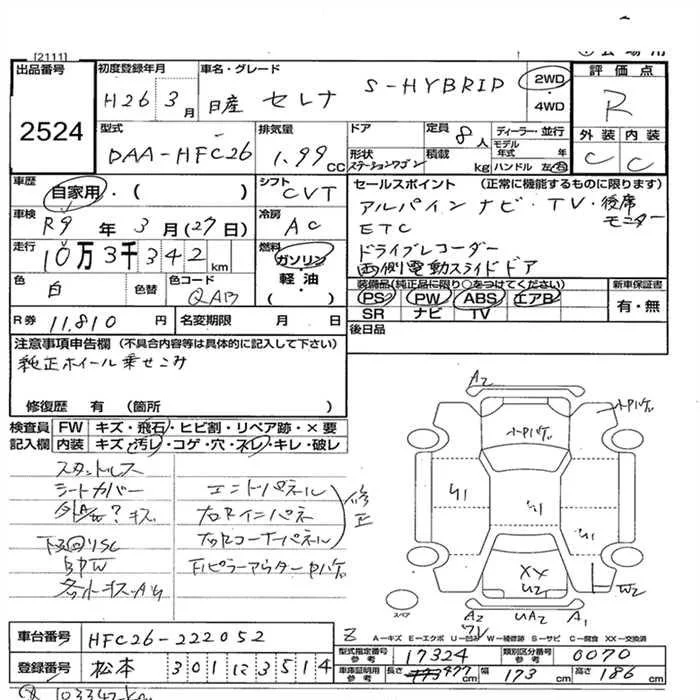 [2111]
出品番号 2524
初度登録年月 H26年3月
車名・グレード 日産 セレナ S-HYBRID
2WD・4WD
評価点 R
外装 C 内装 C
型式 DAA-HFC26
排気量 1.99CC
ドア
形状 ステーションワゴン
定員 8人
積載 kg
ディーラー・並行
モデル年式 年
ハンドル 左・右
車歴 自家用・( )
シフト CVT
セールスポイント (正常に機能するものに限ります)
アルパイン ナビ・TV・後席モニター
ETC
ドライブレコーダー
両側電動スライドドア
車検 R9年3月(27日)
冷房 AC
走行 10万3千342km
燃料 ガソリン・軽油・( )
色 白 色替
色コード QAB
装備品(純正品に限り○をつけてください)
PS PW ABS エアB
SR ナビ TV
新車保証書 有・無
R券 11,810円
名変期限 月 日
後日品
注意事項申告欄 (不具合内容等は具体的に記入して下さい)
純正ホイール乗せこみ
修復歴 有 (箇所 )
検査員記入欄
FW キズ・飛石・ヒビ割・リペア跡・×要
内装 キズ・汚レ・コゲ・穴・スレ・キレ・破レ
スタットレス
シートカバー
エンドパネル
右Rインパネ
右Rコーナーパネル
修正
下回りSC
A2
トハパゲ
U1
U1
U1
XX
U2
W2
A2 UA2 A1
スペア
A-キズ E-エクボ U-凹み W-補修跡 S-サビ C-腐食 XX-交換済
車台番号 HFC26-222052
型式指定番号 参考 17324
類別区分番号 参考 0070
登録番号 松本 301 1 3514
車庫証明用 参考 長さ 477cm 幅 173cm 高さ 186cm